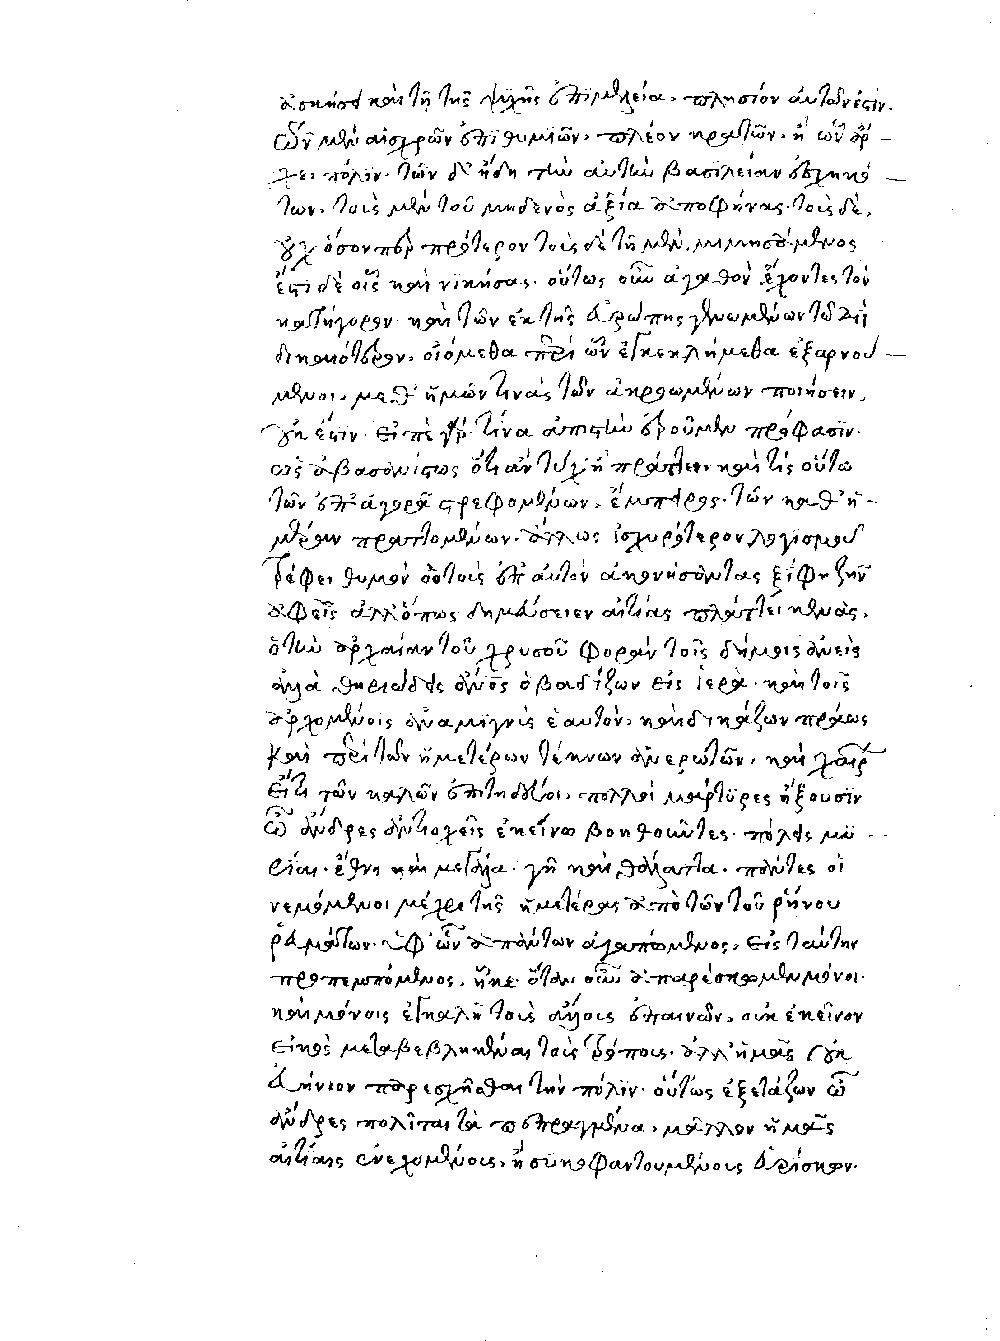 ἀσκήσει καὶ τῇ τῆς ψυχῆς ἐπιμελεία. πλησίον αὐτῶν ἐστιν.
ὧν μὲν αἰσχρῶν ἐπιθυμιῶν. πλέον κρατῶν. ἢ ὧν ἄρ
χει πόλεων. τῶν δ' ἤδη τὴν αὐτὴν βασιλείαν εἰληφό
των. τοὺς μὲν τοῦ μηδενὸς ἀξία ἀποφήνας. τοὺς δὲ,
οὐχ ὅσον περ πρότερον τοὺς δὲ τῇ μὲν, μιμησόμενος
ἔστι δὲ οἷς καὶ νικήσας. οὕτως οὖν ἀγαθὸν ἔχοντες τὸν
κατήγορον. καὶ τῶν ἐκ τῆς εὐρώπης γενομένων τῷ
δικαιότερον. οἰόμεθα περὶ ὧν ἐγκεκλήμεθα ἐξαρνού
μενοι. μεθ' ἡμῶν τινὰς τῶν ἀκροωμένων ποιήσειν.
οὐκ ἔστιν. εἰπὲ γάρ τινα ἀπιστεῖν ἐροῦμεν πρόφασιν.
ὡς ἀβασανίστως ὅτι ἂν τύχῃ πράττει. καὶ τίς οὕτω
τῶν ἐπ' ἀγορᾶς στρεφομένων. ἔμπειρος. τῶν καθ' ἡ
μέραν πραττομένων. ἀλλ' ὡς ἰσχυρότερον λογισμοῦ
τρέφει θυμὸν ὃ τοὺς ἐπ' αὐτὸν ἀκονήσαντας ξίφη ζῆν
ἀφεὶς ἀλλ' ὅπως δημεύσειεν αἰτίας πλάττει κενάς.
ὁ τὴν ἀρχαίαν τοῦ χρυσοῦ φορὰν τοῖς δήμοις ἀνεὶς
ἀλλὰ θηριώδης ἄνος ὁ βαδίζων εἰς ἱερὰ. καὶ τοῖς
ἀρχομένοις ἀναμιγνὺς ἑαυτὸν. καὶ δικάζων πράως
καὶ περὶ τῶν ἡμετέρων τέκνων ἀνερωτῶν. καὶ χαίρ
εἴ τι τῶν καλῶν ἐπιτηδεύοι. πολλοὶ μάρτυρες ἥξουσιν
ὦ ἄνδρες ἀντιοχεῖς ἐκείνω βοηθοῦντες. πόλεις μυ
ρίαι. ἔθνη καὶ μεγάλα. γῆ καὶ θάλαττα. πάντες οἱ
νεμόμενοι μέχρι τῆς ἡμετέρας ἀπὸ τῶν τοῦ ῥήνου
ῥευμάτων. ὑφ' ὧν ἁπάντων ἀγαπώμενος. εἰς ταύτην
προπεμπόμενος. ἧκε. ὅταν οὖν ἀπαρέσκωμεν μόνοι.
καὶ μόνοις ἐγκαλῇ τοὺς ἄλλους ἐπαινῶν. οὐκ ἐκεῖνον
εἰκὸς μεταβεβληκέναι τοὺς τρόπους. ἀλλ' ἡμᾶς οὐκ
εὐήνιον παρεσχῆσθαι τὴν πόλιν. οὕτως ἐξετάζων ὦ
ἄνδρες πολῖται τὰ πεπραγμένα. μᾶλλον ἡμᾶς
αἰτίαις ἐνεχομένους. ἢ συκοφαντουμένους εὑρίσκων.